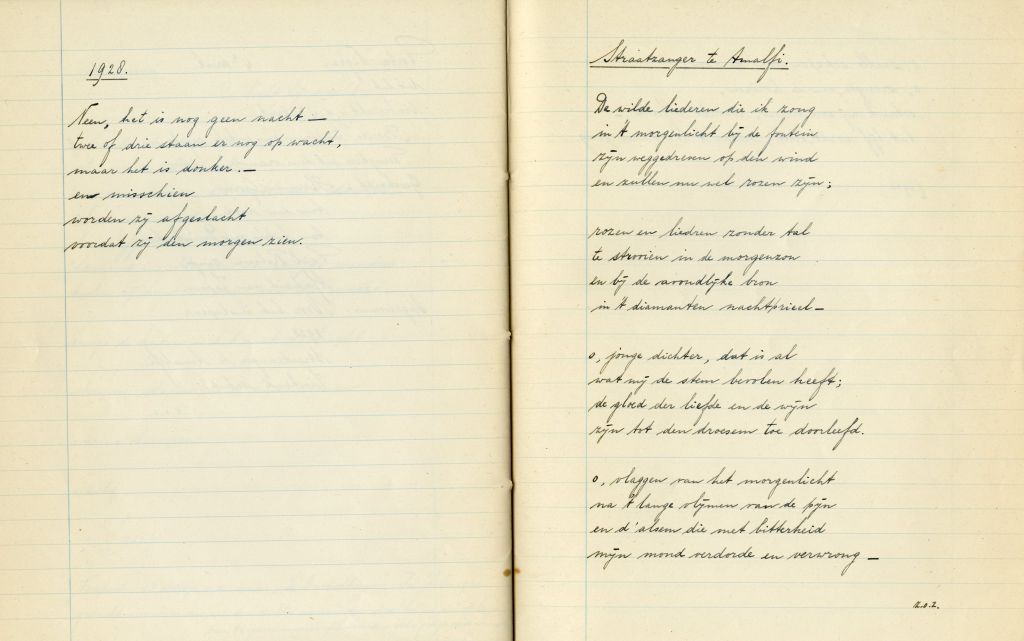 1928.
Neen, het is nog geen nacht —
twee of drie staan er nog op wacht,
maar het is donker. —
en misschien
worden zij afgeslacht
voordat zij den morgen zien.
Straatzanger te Amalfi.
De wilde liederen die ik zong
in 't morgenlicht bij de fontein
zijn weggedreven op den wind
en zullen nu wel rozen zijn;
rozen en liedren zonder tal
te strooien in de morgenzon
en bij de avondlijke bron
in 't diamanten nachtprieel —
o, jonge dichter, dat is al
wat mij de stem bevolen heeft;
de gloed der liefde en de wijn
zijn tot den droesem toe doorleefd.
o, vlaggen van het morgenlicht
na 't lange vlijmen van de pijn
en d'alsem die met bitterheid
mijn mond verdorde en verwrong —